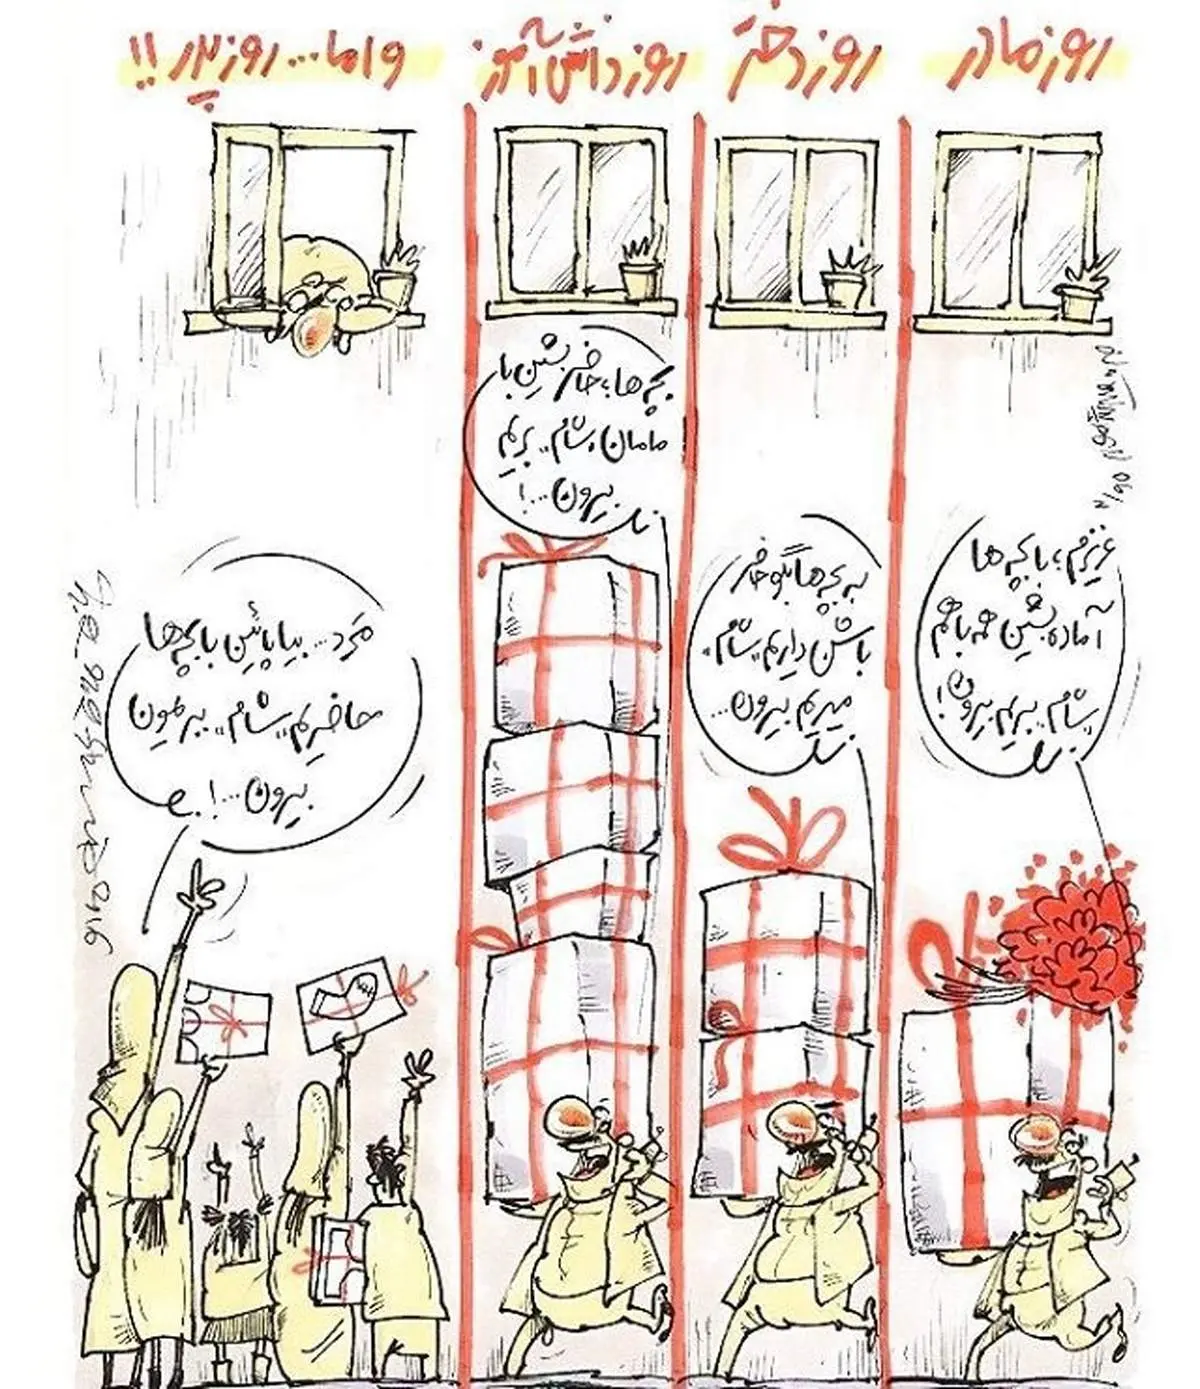 روز مادر
روز دختر
روز دانش آموز
و اما... روز پدر!!
عزیزم، با بچه ها
آماده بشین همه با هم
شام.. بریم بیرون!
به بچه ها بگو حاضر
باشن داریم "شام"
میریم بیرون...
بچه ها، حاضر بشین با
مامان، شام.. بریم
بیرون...!
مَرد... بیا پائین با بچه ها
حاضریم "شام".. ببرمون
بیرون...!